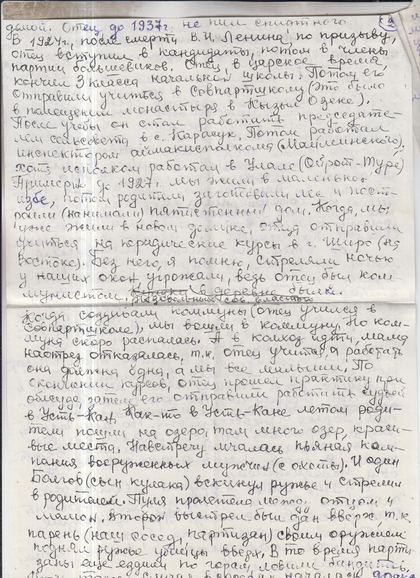 домой. Отец до 1937г. не пил спиртного.
В 1924г., после смерти В.И. Ленина по призыву,
отец вступил в кандидаты, потом в члены
партии большевиков. Отец в царское время
кончил 3 класса начальной школы. Потом его
отправили учиться в Совпартшколу (это было
в помещении монастыря в Кызыл Озеке).
После учебы он стал работать председате-
лем сельсовета в с. Каракук. Потом работал
инспектором аймакисполкома
хотя исполком работал в Улале (Ойрот-Тура)
Примерно до 1927г. мы жили в маленькой
избе, потом родители заготовили лес и пост-
роили (нанимали) пятистенный дом. Когда мы
уже жили в новом домике, отца отправили
учиться на юридические курсы в г. (на
востоке). Без него, я помню, стреляли ночью
у наших окон, угрожали, ведь отец был ком-
мунистом, в деревне были
недовольные сов. властью
Когда создавали коммуны (отец учился в
Совпартшколе), мы вошли в коммуну. Но ком-
муна скоро распалась. А в колхоз идти, мама
наотрез отказалась, т.к. отец учится, а работать
она должна одна, а мы все малыши. По
окончании курсов, отец прошел практику при
облсуде, затем его отправили работать судьей
в Усть-Кан. Как-то в Усть-Кане летом роди-
тели пошли на озеро, там много озер, краси-
вые места. Навстречу мчалась пьяная ком-
пания вооруженных мужчин (с охоты). И один
Болгов (сын кулака) вскинул ружье и стрелял
в родителей. Пуля пролетела между отцом и
мамой, второй выстрел был дан вверх, т.к.
парень (наш сосед, партизан) своим оружием
поднял ружье убийцы вверх. В то время парти-
заны еще ездили по горам, ловили бандитов,